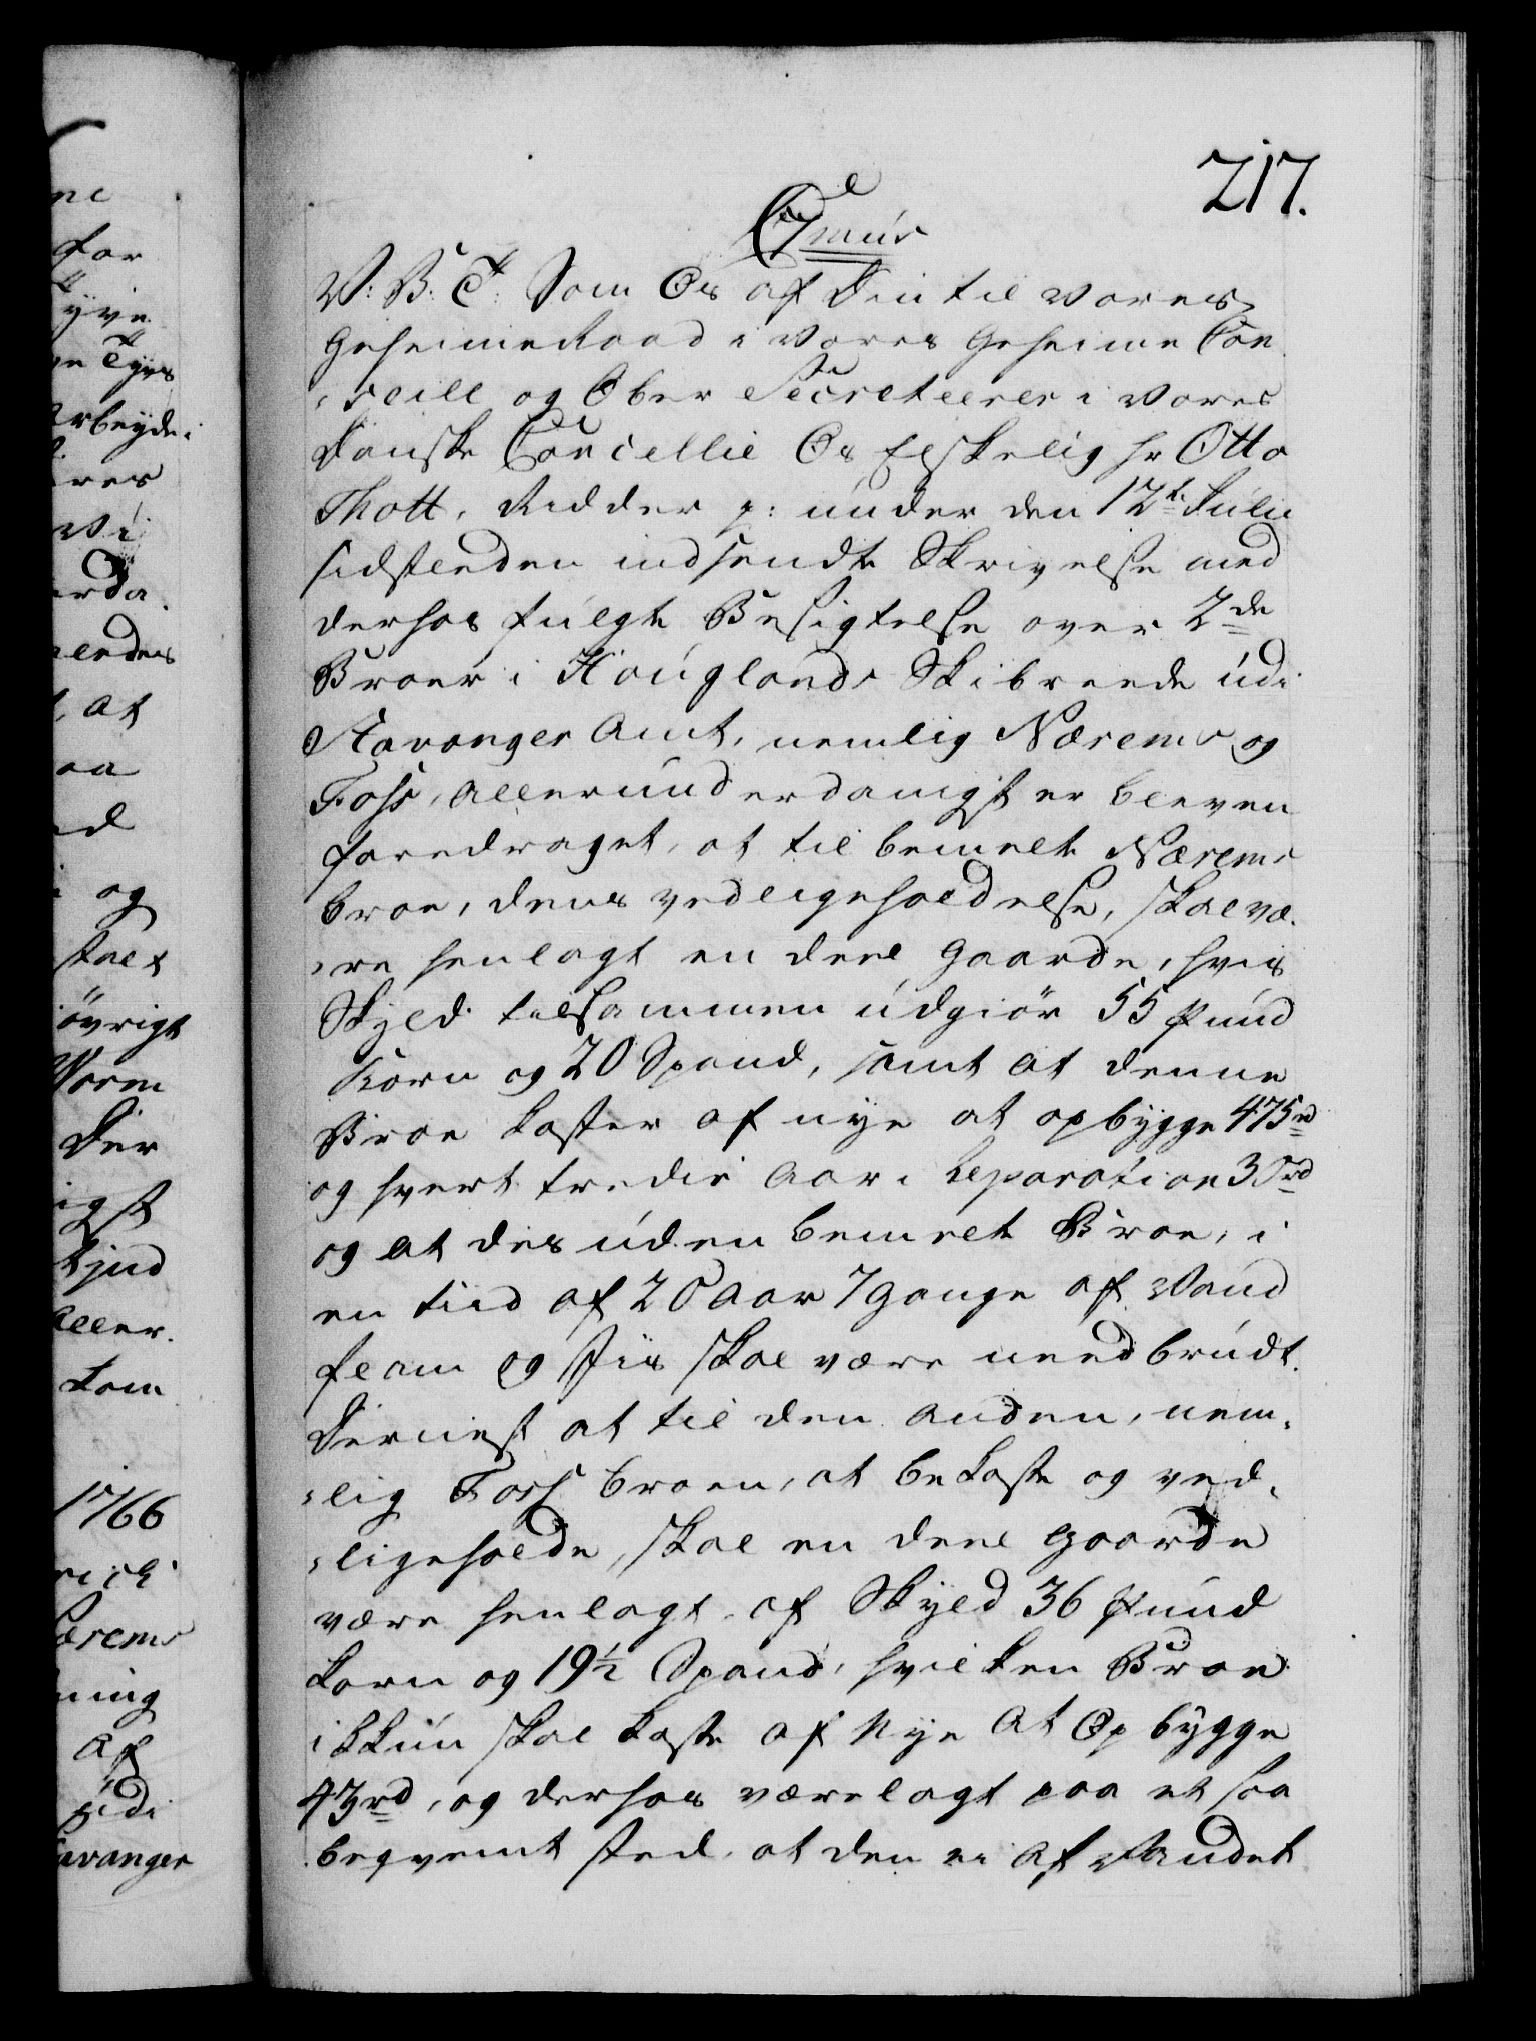 217.
V: B: T: Som Os af Din til vores
Geheimeraad i vores Geheime Con
seill og Ober Secreteerer i vores
Danske Cancellie Os Elskelig Hr Otto
Thott, Ridder p: under den 12te Julii
sidstleeden indsendte Skrivelse med
derhos fulgte Besigtelse over 2de
Broer i Houglands Skibreede udi
Stavanger Amt, nemlig Nærems og
Foss, allerunderdanigst er bleven
foredraget, at til bemelte Nærems
broe, dens vedligeholdelse, skal væ-
-re henlagt en deel Gaarde, hvis
Skyld tilsammen udgiør 55 Pund
Korn og 20 Spand, samt at denne
Broe koster af nye at opbygge 475 rd
og hvert tredie Aar i Reparation 30 rd
og at des uden bemelte Broe, i
en tiid af 20 Aar 7 Gange af Vand
fl og Iis skal være needbrudt.
Dernest at til den anden, nem-
-lig Foss broen, at bekoste og ved-
-ligeholde, skal en deel Gaarde
være henlagt af Skyld 36 Pund
korn og 19½ Spand, hvilken Broe
ikkun skal koste af Nye At Opbygge
43 rd, og derhos være lagt paa et saa
beqvemt sted, at den ei af Vandet
ne
for
Tyve
Arbeyde
ores
vi
lædes
, at
aa
ed
i og
skal
övrigt
Norm
Der
igst
Aller-
kom
1766
Nærems
ning
Af
udi
Stavanger